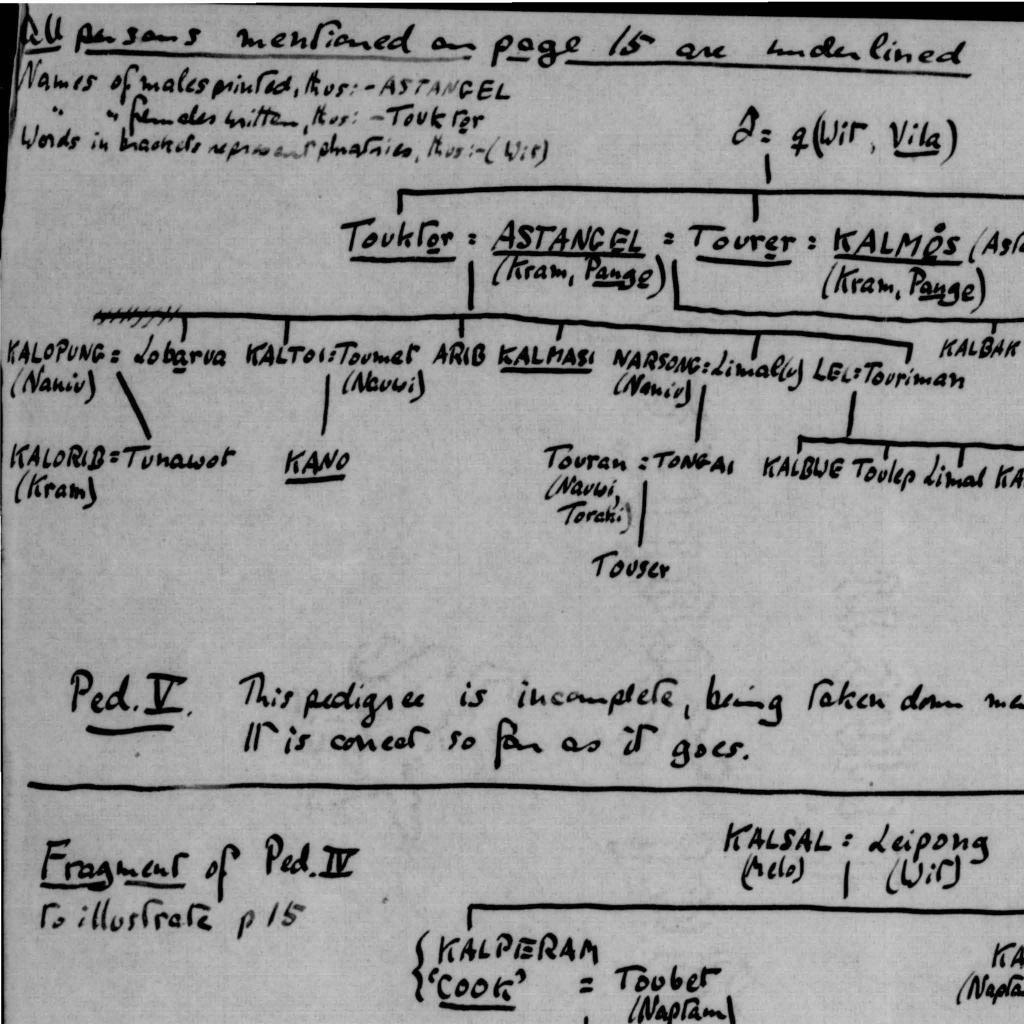 All persons mentioned on page 15 are underlined
Names of males printed, thus:- ASTANGEL
" " females written, thus:- Touktor
Words in brackets represent phratries, thus:- (Wit)
♂ = ♀ (Wit, Vila)
Touktor = ASTANGEL = Tourer = KALMOS (Ast
(Kram, Pange) (Kram, Pange)
KALOPUNG = Lobarva KALTOI = Toumet ARIB KALMASI NARSONG = Limal(u) LEL = Touriman KALBAK
(Naniu) (Nauwi) (Naniu)
KALORIB = Tunawot KANO Touran = TONGAI KALBWE Toulep Limal KA
(Kram) (Nauwi,
Toraki)
Touser
Ped. V. This pedigree is incomplete, being taken down me
It is correct so far as it goes.
Fragment of Ped. IV
to illustrate p 15
KALSAL = Leipong
(Melo) (Wit)
{KALPERAM KA
{'COOK' = Toubet (Napta
(Naptam)